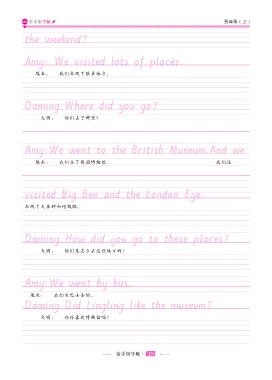 五年级（上）
the weekend?
Amy: We visited lots of places.
Daming:Where did you go?
大明： 你们去了哪里？
Amy:We went to the British Museum.And we
我们去了英国博物馆。 我们还
visited Big Ben and the London Eye.
Daming:How did you go to these places?
大明： 你们是怎么去这些地方的？
Amy:We went by bus.
Daming:Did Lingling like the museum?
大明： 玲玲喜欢博物馆吗？